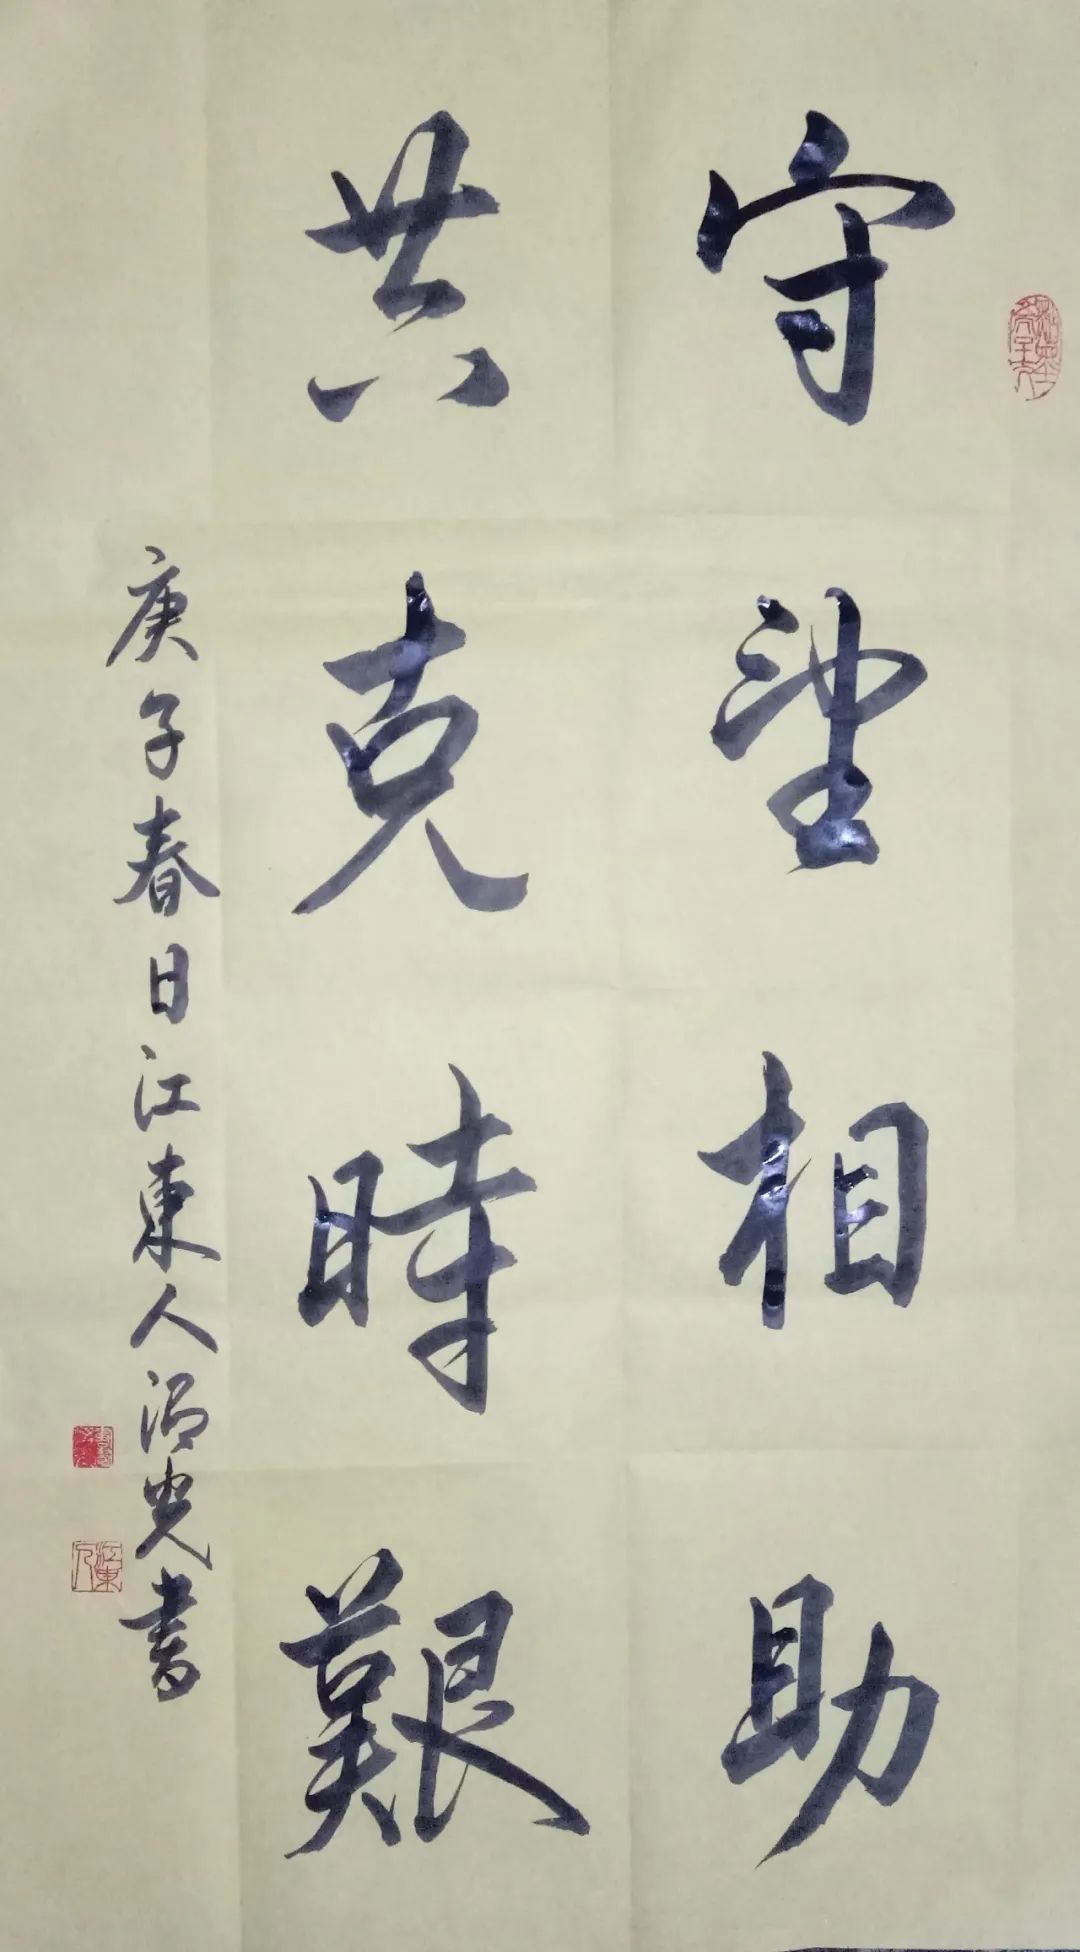 守望相助
共克時艱
庚子春日江東人沼光書
江東